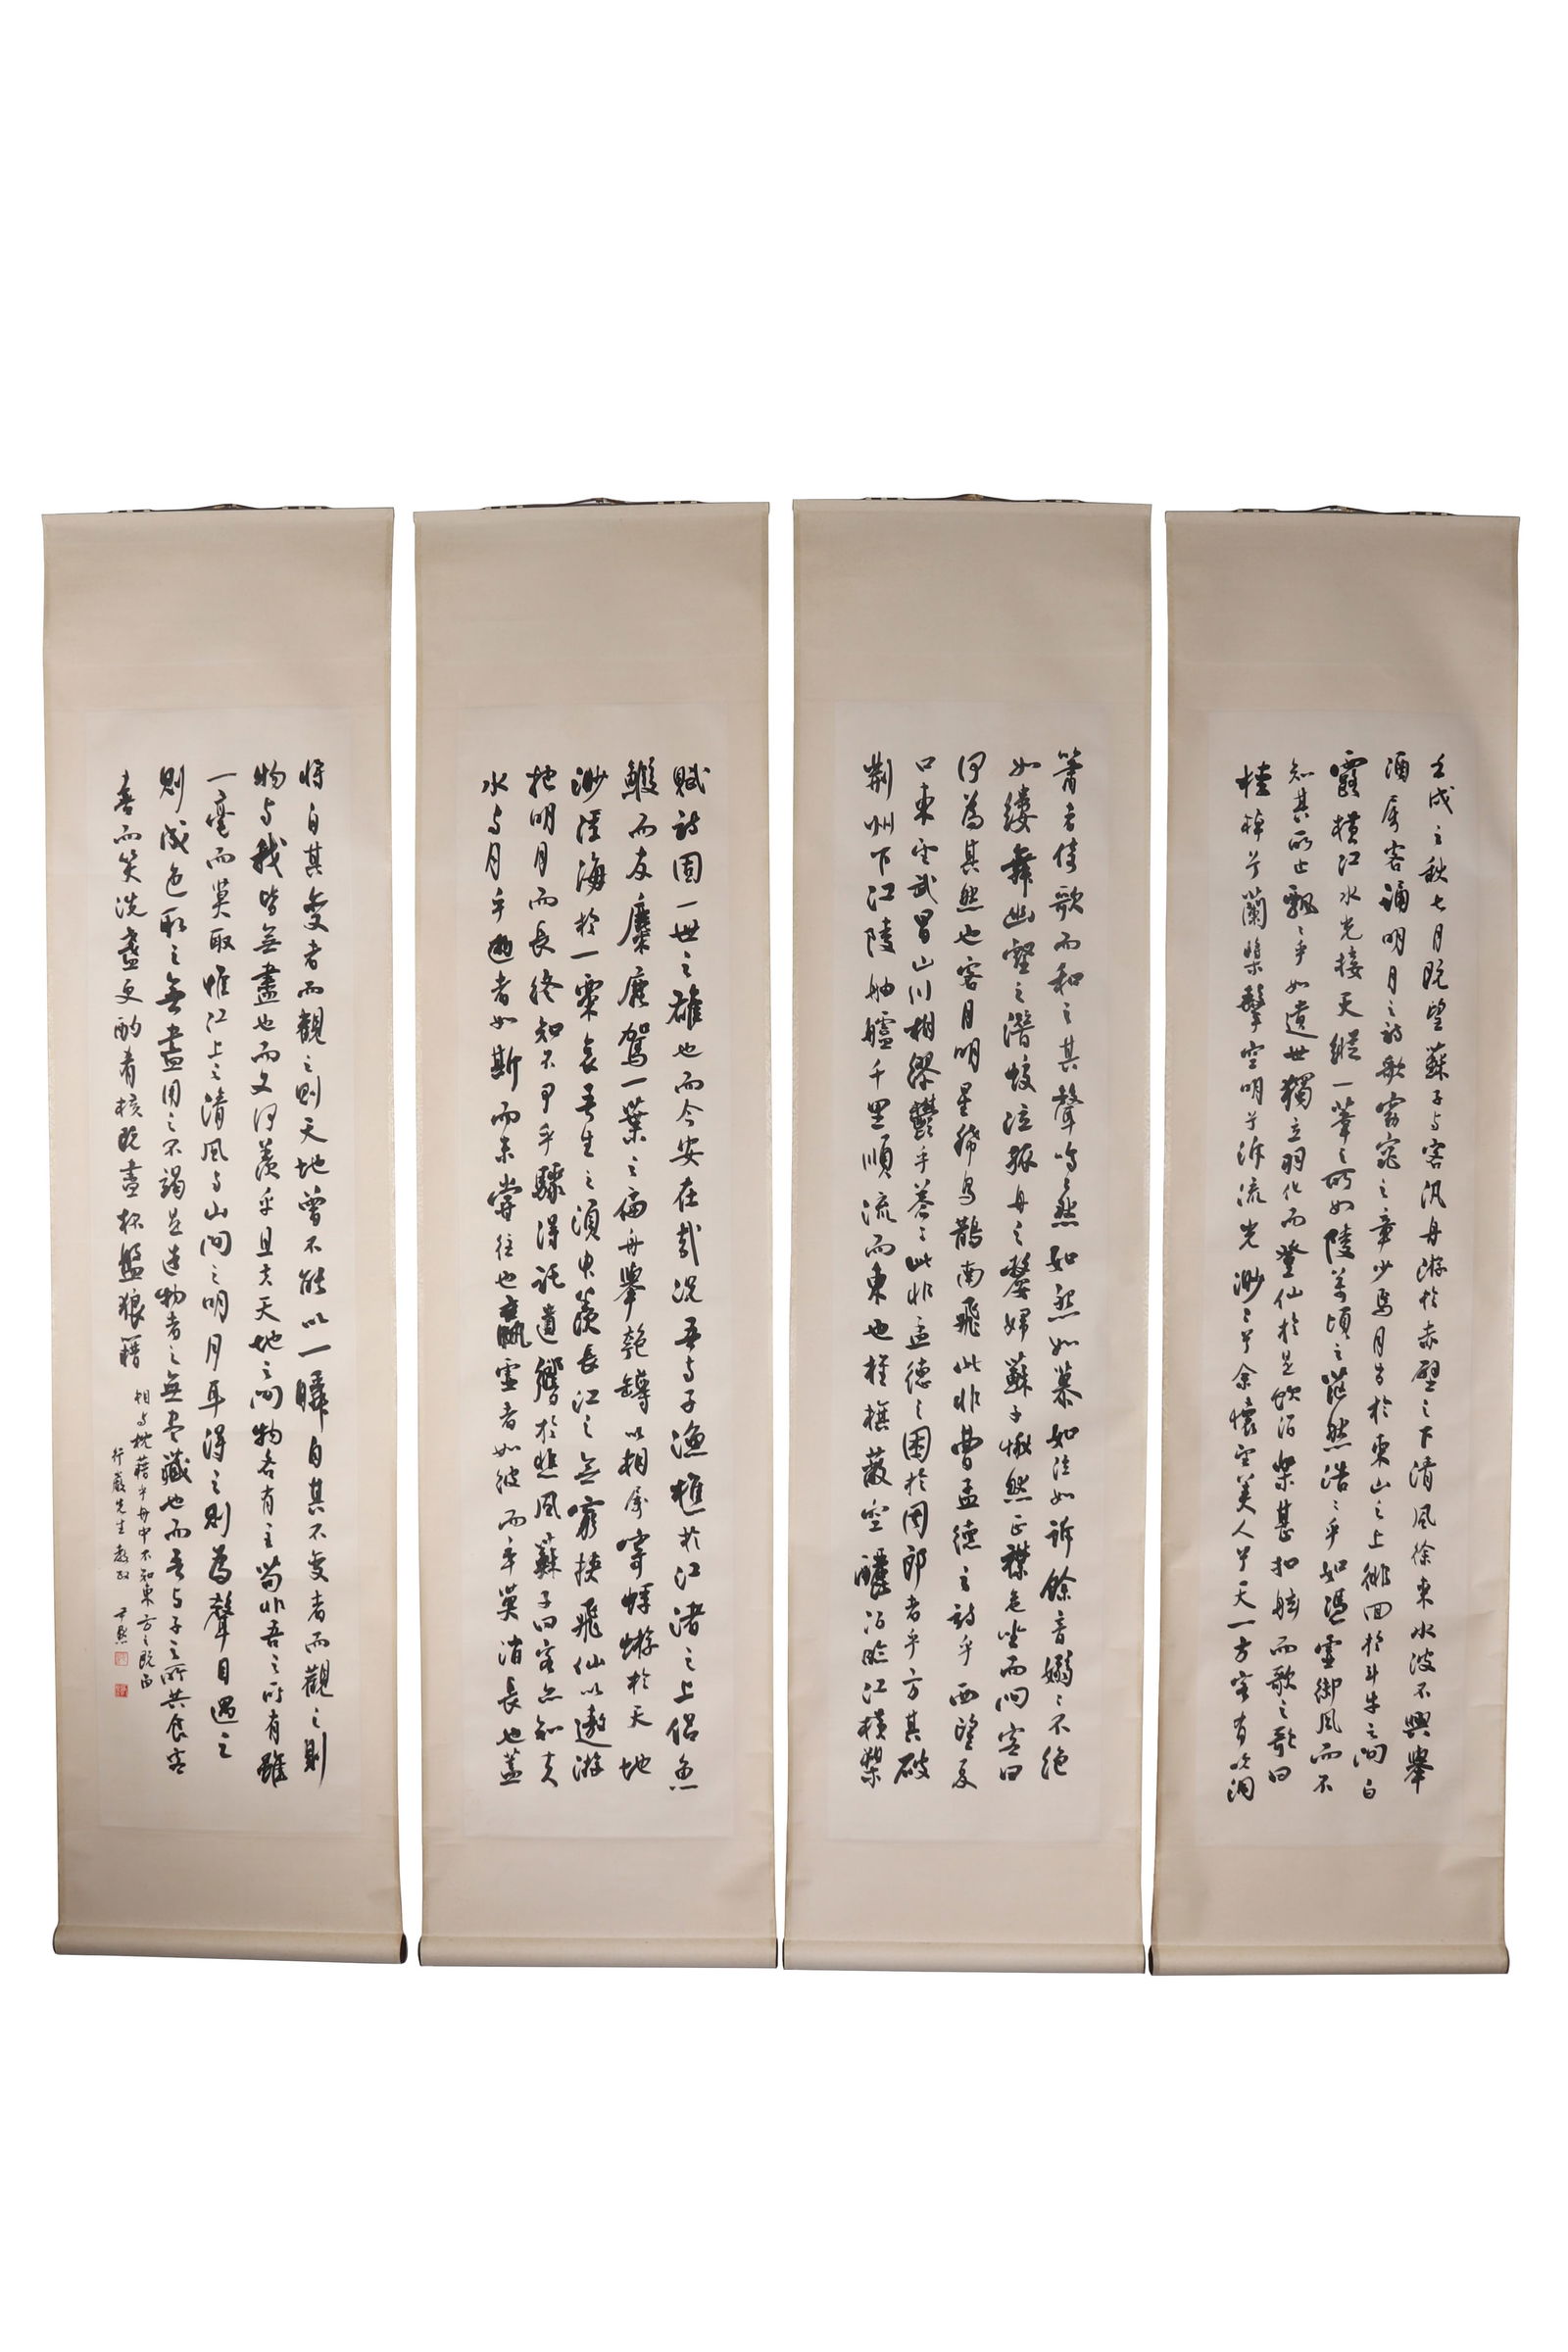 壬戌之秋七月既望蘇子与客汎舟游於赤壁之下清風徐來水波不興舉
酒屬客誦明月之詩歌窈窕之章少焉月出於東山之上徘徊於斗牛之間白
露橫江水光接天縱一葦之所如陵萬頃之茫然浩〻乎如馮虛御風而不
知其所止飄〻乎如遺世獨立羽化而登仙於是飲酒樂甚扣舷而歌之歌曰
桂棹兮蘭槳擊空明兮泝流光渺〻兮余懷望美人兮天一方客有吹洞
簫者倚歌而和之其聲嗚然如怨如慕如泣如訴餘音嫋〻不絕
如縷舞幽壑之潛蛟泣孤舟之嫠婦蘇子愀然正襟危坐而問客曰
何為其然也客曰月明星稀烏鵲南飛此非曹孟德之詩乎西望夏
口東望武昌山川相繆鬱乎蒼〻此非孟德之困於周郎者乎方其破
荊州下江陵舳艫千里順流而東也旌旗蔽空釃酒臨江橫槊
賦詩固一世之雄也而今安在哉況吾与子漁樵於江渚之上侶魚
鰕而友麋鹿駕一葉之扁舟舉匏罇以相屬寄蜉蝣於天地
渺滄海於一粟哀吾生之須臾羨長江之無窮挾飛仙以遨游
抱明月而長終知不可乎驟得託遺響於悲風蘇子曰客亦知夫
水与月乎逝者如斯而未嘗往也贏虛者如彼而卒莫消長也蓋
將自其變者而觀之則天地曾不能以一瞬自其不變者而觀之則
物与我皆無盡也而又何羨乎且夫天地之間物各有主苟非吾之所有雖
一毫而莫取惟江上之清風与山間之明月耳得之則為聲目遇之
則成色取之無盡用之不竭是造物者之無盡藏也而吾与子之所共食客
喜而笑洗盞更酌肴核既盡杯盤狼藉
相与枕藉乎舟中不知東方之既白
行嚴先生教正 尹默